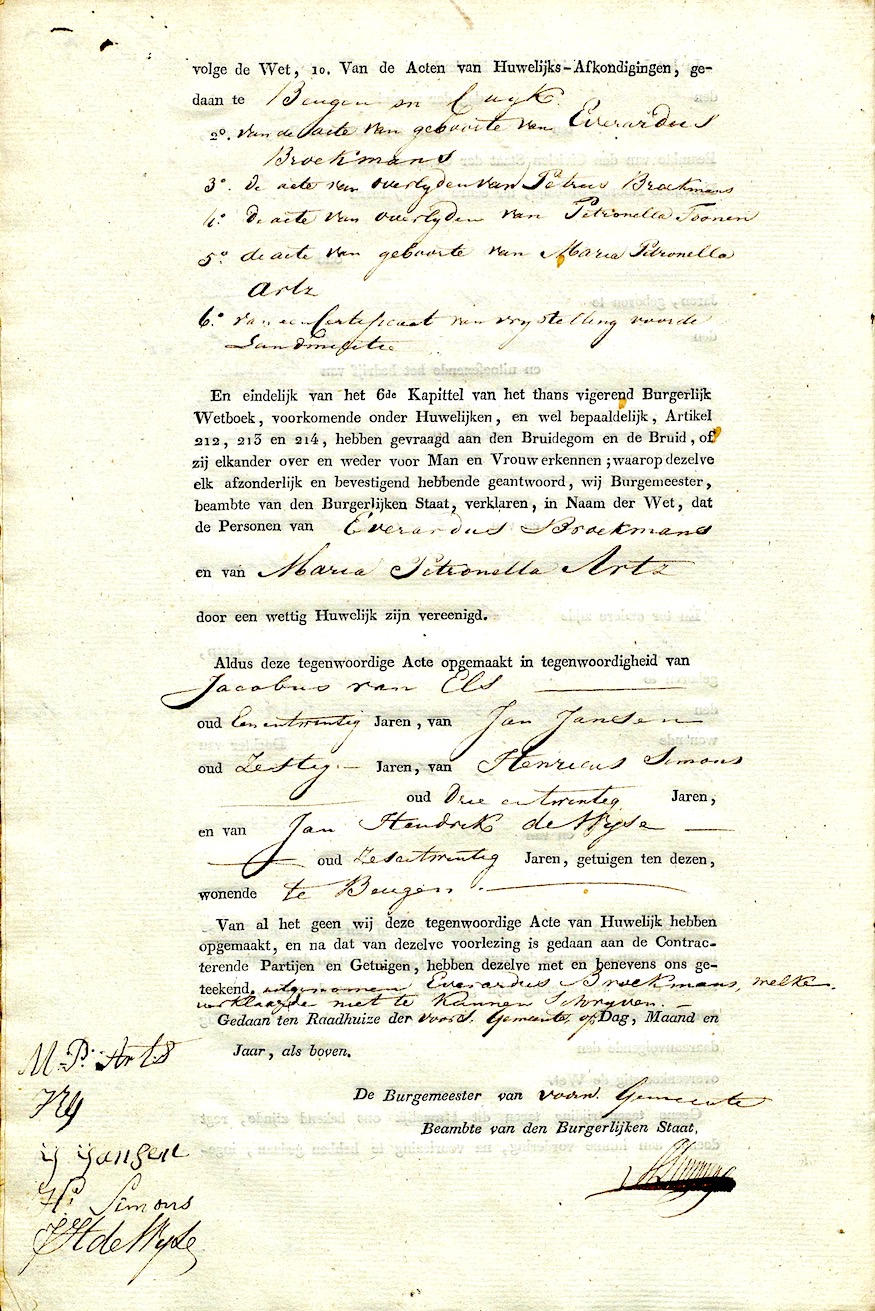 volge de Wet, 10. Van de Acten van Huwelijks-Afkondigingen, ge-
daan te Beugen en Cuyk.
2o. van de acte van geboorte van Everardus
Broekmans
3o. de acte van overlyden van Petrus Broekmans
4o. de acte van overlyden van Petronella Toonen
5o de acte van geboorte van Maria Petronella
Artz
6o. van een Certificaat van vrystelling voor de
En eindelijk van het 6de Kapittel van het thans vigerend Burgerlijk
Wetboek, voorkomende onder Huwelijken, en wel bepaaldelijk, Artikel
212, 213 en 214, hebben gevraagd aan den Bruidegom en de Bruid, of
zij elkander over en weder voor Man en Vrouw erkennen; waarop dezelve
elk afzonderlijk en bevestigend hebbende geantwoord, wij Burgemeester,
beambte van den Burgerlijken Staat, verklaren, in Naam der Wet, dat
de Personen van Everardus Broekmans
en van Maria Petronella Artz
door een wettig Huwelijk zijn vereenigd.
Aldus deze tegenwoordige Acte opgemaakt in tegenwoordigheid van
Jacobus van Els
oud Eenentwintig Jaren, van Jan Jansen
oud Zestig Jaren, van Henricus Simons
oud Drie entwinteg Jaren,
en van Jan Hendrik de Wyse
oud Zesentwintig Jaren, getuigen ten dezen,
wonende te Beugen.
Van al het geen wij deze tegenwoordige Acte van Huwelijk hebben
opgemaakt, en na dat van dezelve voorlezing is gedaan aan de Contrac-
terende Partijen en Getuigen, hebben dezelve met en benevens ons ge-
teekend, uitgenomen Everardus Broekmans, welke
verklaarde niet te kunnen Schryven.
Gedaan ten Raadhuize der voors. Gemeente, op Dag, Maand en
Jaar, als boven.
M. P. Arts
De Burgemeester van voorn. Gemeente
Beambte van den Burgerlijken Staat,
ij ijansen
Hs Simons
JH de Wyse